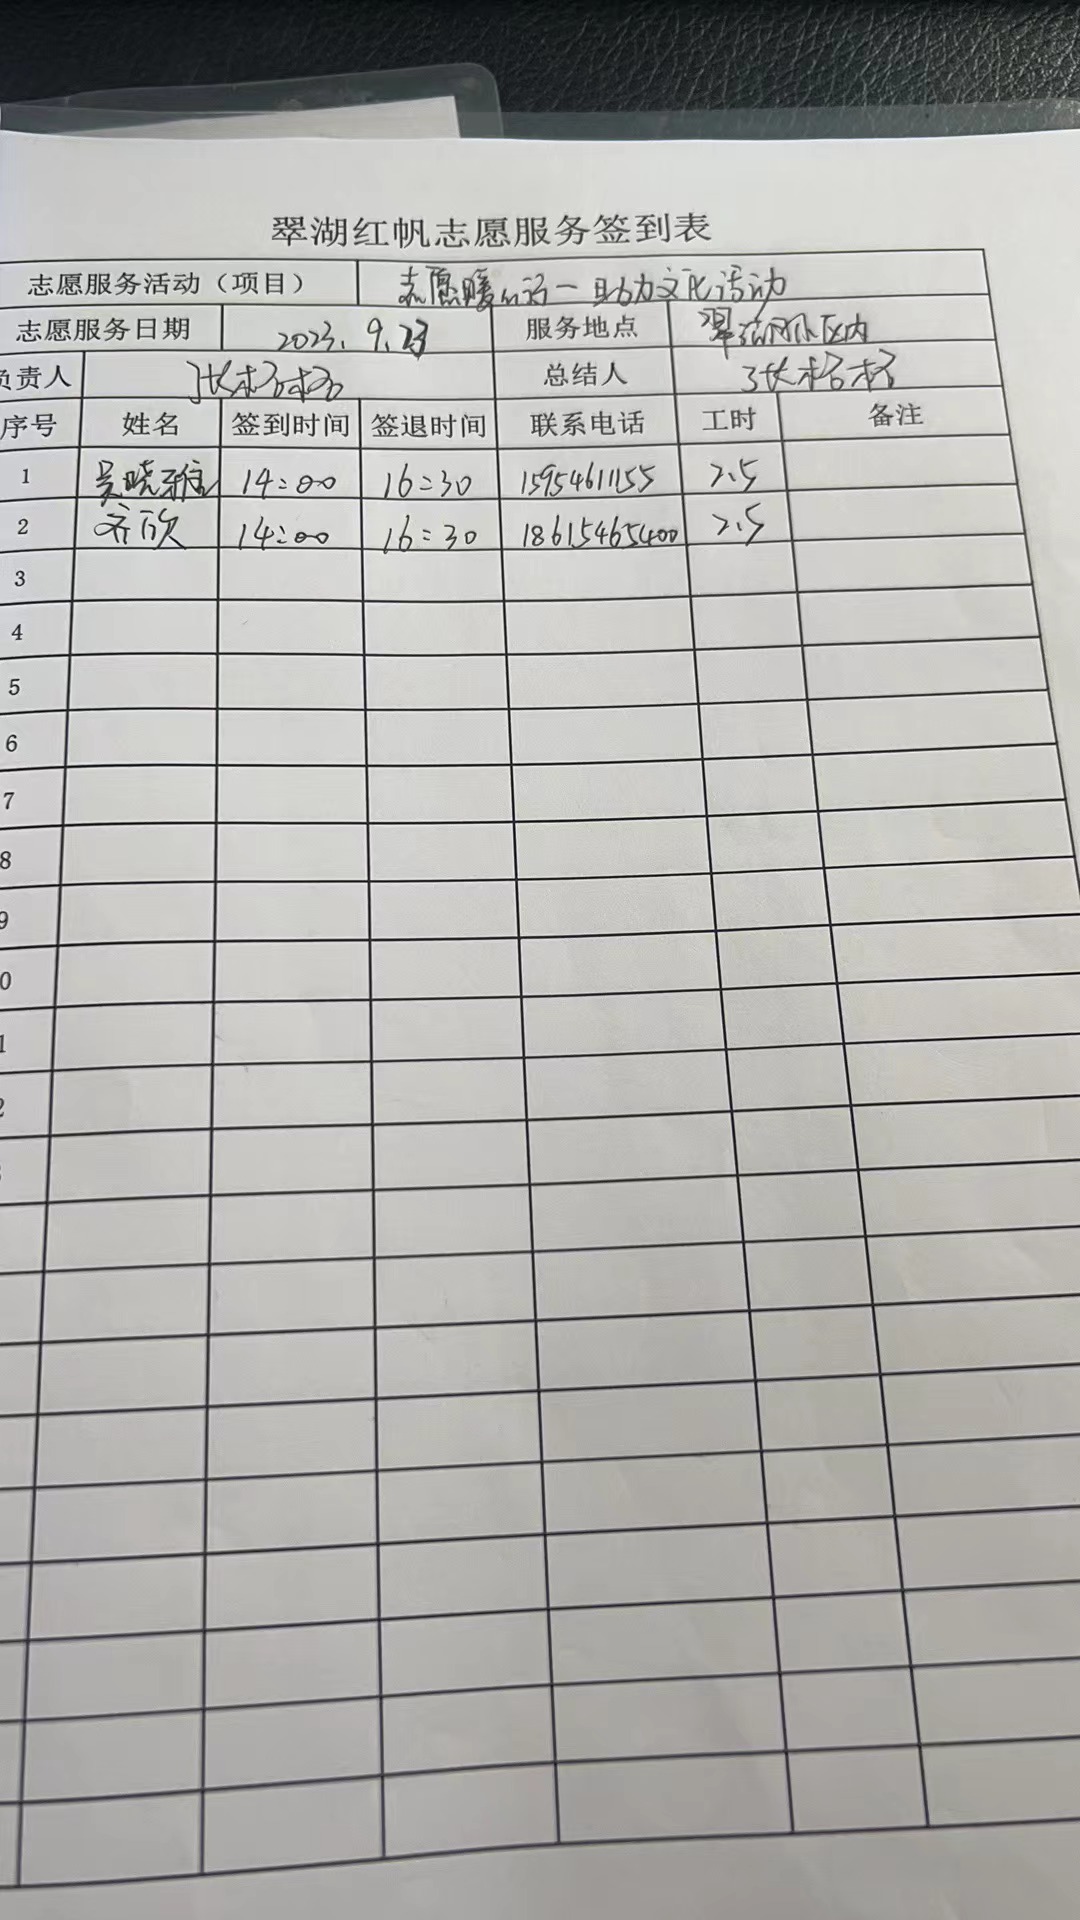 翠湖红帆志愿服务签到表
志愿服务活动（项目） 志愿暖心 一助力文化活动
志愿服务日期 2023.9.23 服务地点 翠湖小区内
负责人 张格格 总结人 张格格
序号 姓名 签到时间 签退时间 联系电话 工时 备注
1 吴晓雅 14:00 16:30 15954611155 2.5
2 齐欣 14:00 16:30 18615465400 2.5
3
4
5
6
7
8
9
0
1
2